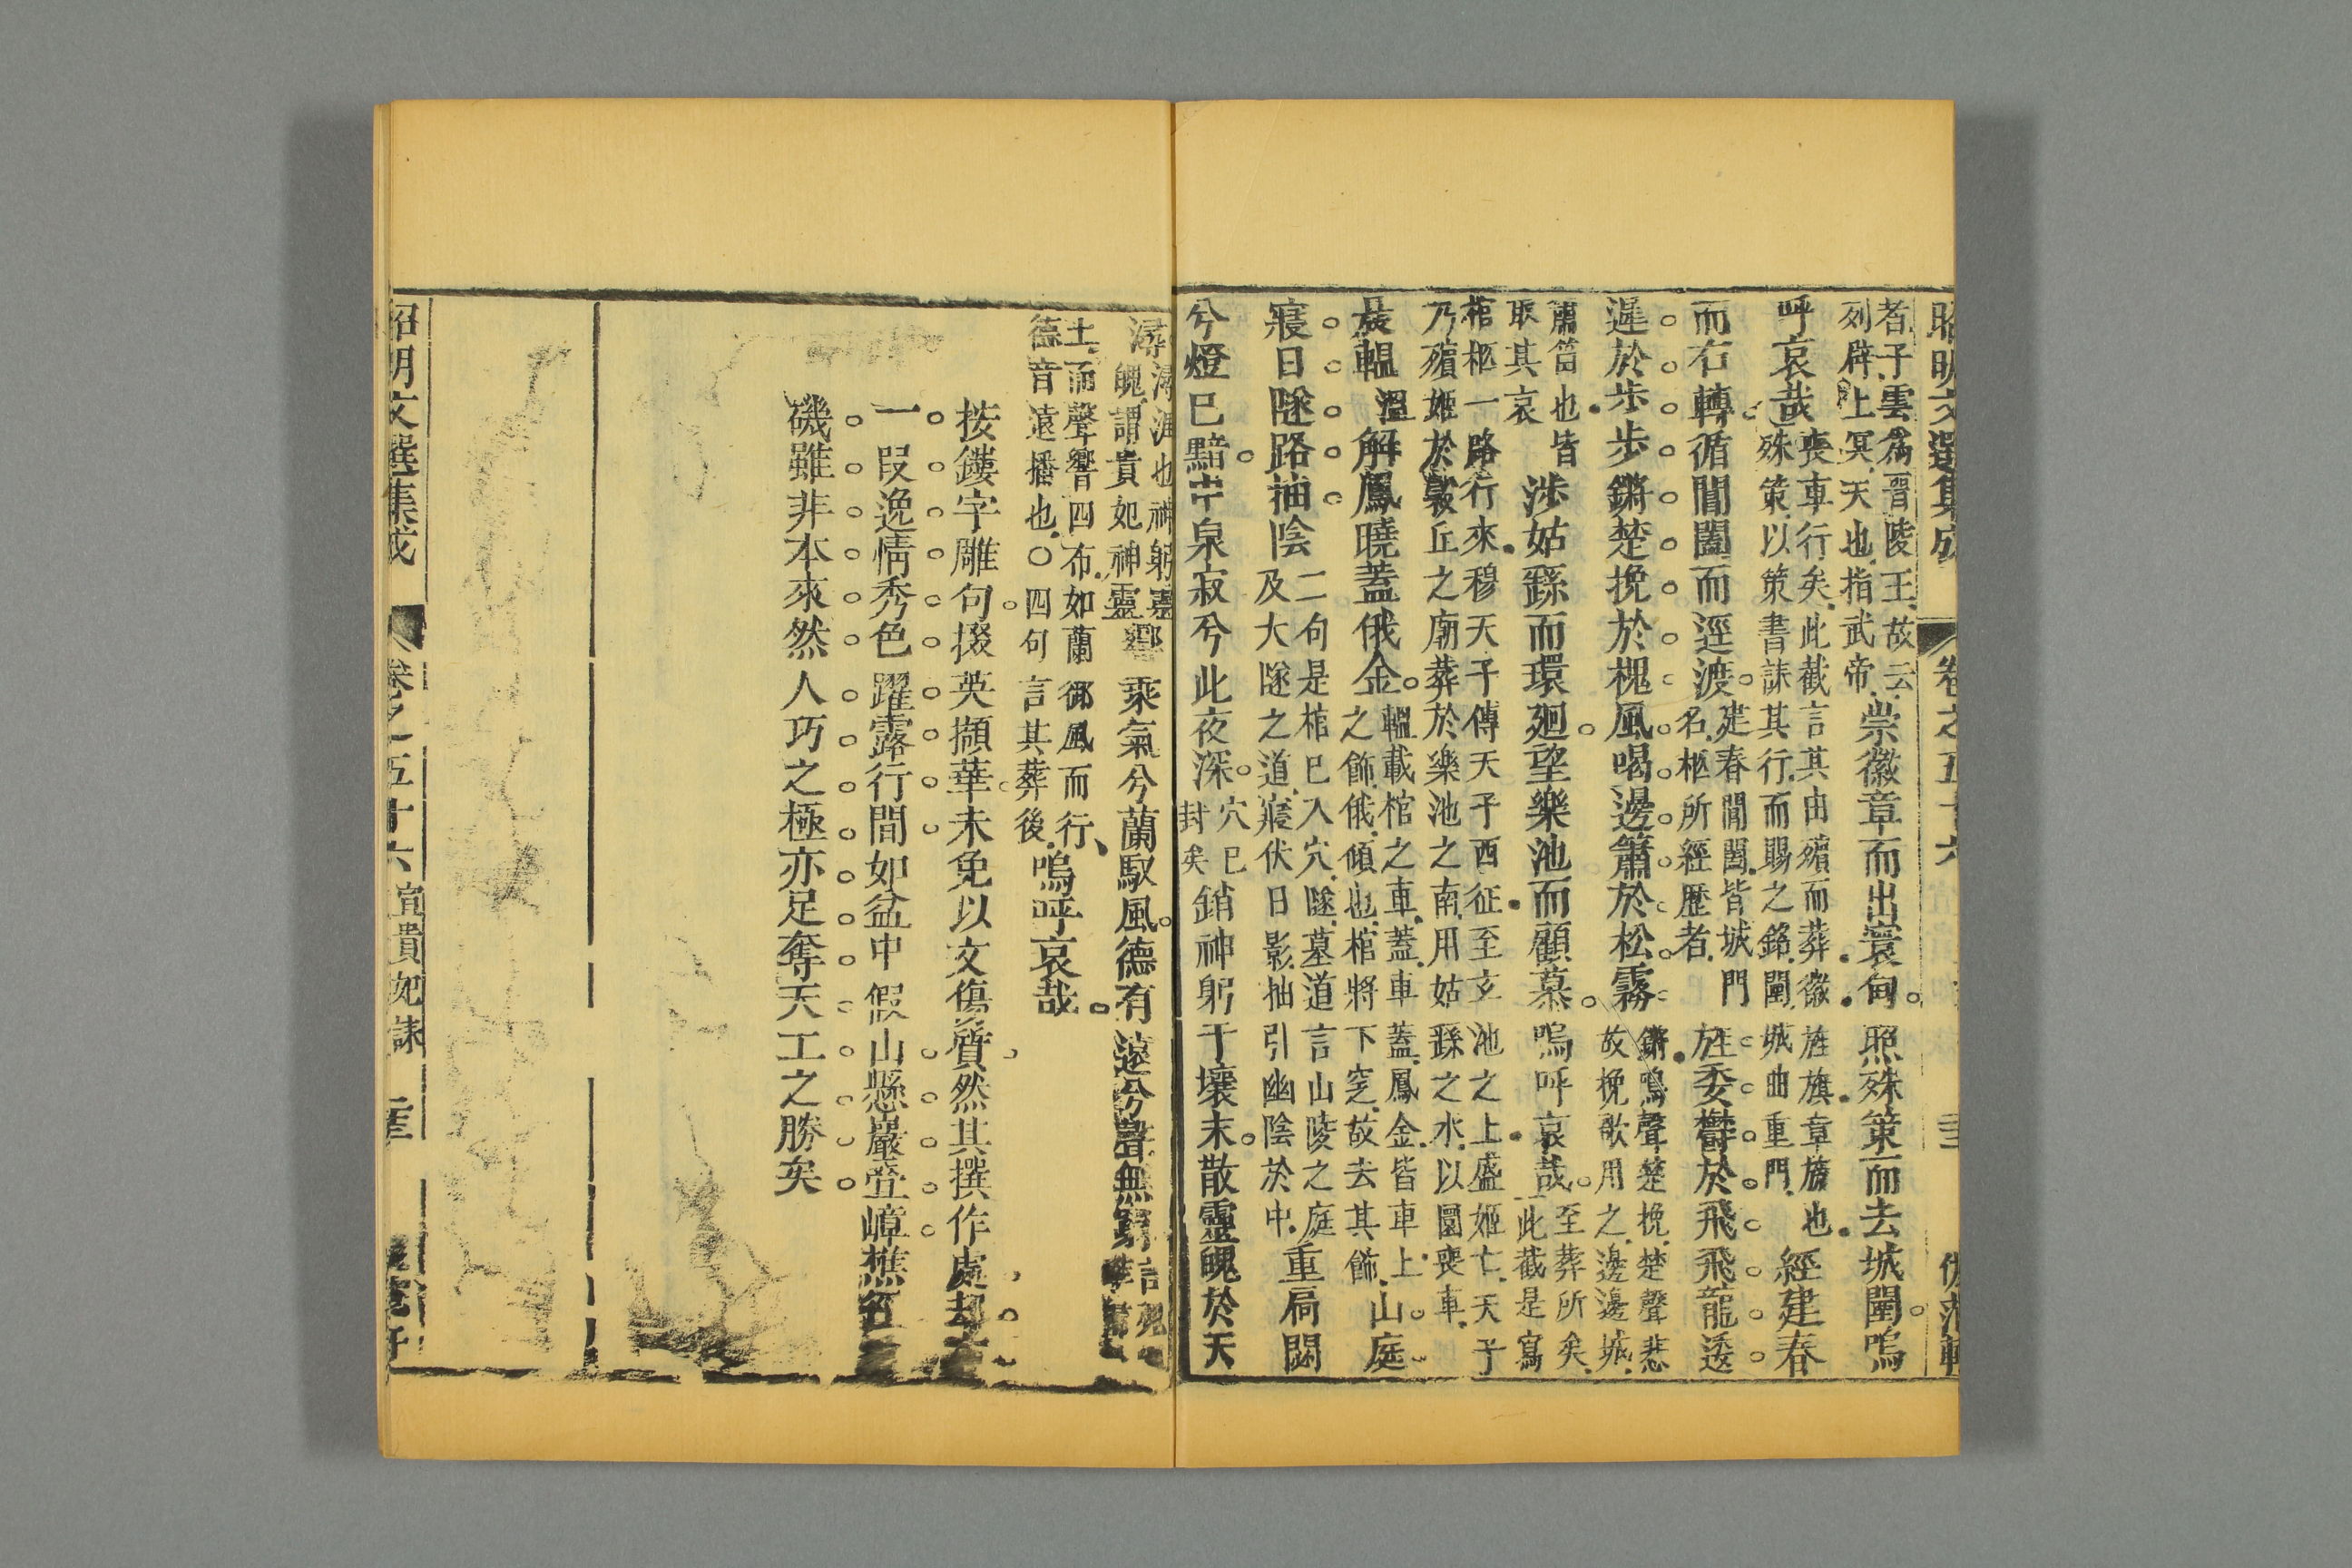 昭明文選集成 卷之五十六
者子雲爲晋陵王故云
列辟上冥天也指武帝
崇徽章而出寰甸照殊策而去城闉嗚
呼哀哉
喪車行矣此截言其由殯而葬徽旌旗章旗也
殊策以策書誄其行而賜之銘闉城曲重門
經建春
而右轉循閶闔而逕渡
建春閶闔皆城門
名柩所經歷者
旌委鬱於飛飛龍逶
遲於步步鏘楚挽於槐風喝邊簫於松霧
鏘鳴聲楚挽楚聲悲
故挽歌用之邊邊城
簫笳也皆
取其哀
涉姑繇而環廻望樂池而顧慕嗚呼哀哉
至葬所矣
此截是寫
棺柩一路行來穆天子傳天子西征至玄池之上盛姬亡天子
乃殯姬於轂丘之廟葬於樂池之南用姑繇之水以圜喪車
晨轀
溫
解鳳曉蓋俄金
轀載棺之車蓋車蓋鳳金皆車上
之飾俄傾也棺將下窆故去其飾
山庭
寢日隧路抽陰
二句是棺巳入穴隧墓道言山陵之庭
及大隧之道寢伏日影抽引幽陰於中
重扃閟
兮燈巳黯中泉寂兮此夜深
穴巳
封矣
銷神躬于壤末散靈魄於天
潯
潯涯也神躬靈
魄謂貴妃神靈
響乘氣兮蘭馭風德有遠兮聲無窮
土而聲響四布如蘭御風而行
德音遠播也〇四句言其葬後
嗚呼哀哉
按鏤字雕句掇英擷華未免以文傷質然其撰作處却
一段逸情秀色躍露行間如盆中假山懸巖壺嶂樵
磯雖非本來然人巧之極亦足奪天工之勝矣
昭明文選集成 卷之五十六 宣貴妃誄